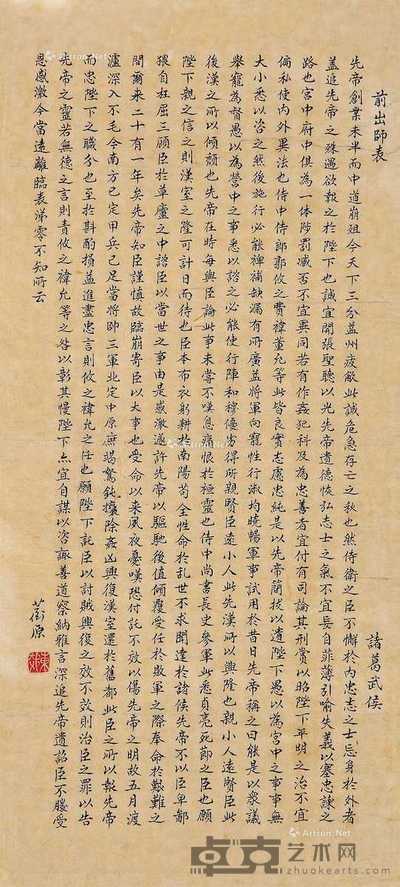 前出師表　諸葛武侯
先帝創業未半而中道崩殂今天下三分益州疲敝此誠危急存亡之秋也然侍衛之臣不懈於內忠志之士忘身於外者
蓋追先帝之殊遇欲報之於陛下也誠宜開張聖聽以光先帝遺德恢弘志士之氣不宜妄自菲薄引喻失義以塞忠諫之
路也宮中府中俱為一體陟罰臧否不宜異同若有作姦犯科及為忠善者宜付有司論其刑賞以昭陛下平明之治不宜
偏私使內外異法也侍中侍郎郭攸之費禕董允等此皆良實志慮忠純是以先帝簡拔以遺陛下愚以為宮中之事事無
大小悉以咨之然後施行必能裨補缺漏有所廣益將軍向寵性行淑均曉暢軍事試用於昔日先帝稱之曰能是以眾議
舉寵為督愚以為營中之事悉以諮之必能使行陣和穆優劣得所親賢臣遠小人此先漢所以興隆也親小人遠賢臣此
後漢之所以傾頹也先帝在時每與臣論此事未嘗不嘆息痛恨於桓靈也侍中尚書長史參軍此悉貞亮死節之臣也願
陛下親之信之則漢室之隆可計日而待也臣本布衣躬耕於南陽苟全性命於亂世不求聞達於諸侯先帝不以臣卑鄙
猥自枉屈三顧臣於草廬之中諮臣以當世之事由是感激遂許先帝以驅馳後值傾覆受任於敗軍之際奉命於艱難之
間爾來二十有一年矣先帝知臣謹慎故臨崩寄臣以大事也受命以來夙夜憂嘆恐付託不效以傷先帝之明故五月渡
瀘深入不毛今南方已定甲兵已足當將帥三軍北定中原庶竭駑鈍攘除姦凶興復漢室還於舊都此臣之所以報先帝
而忠陛下之職分也至於斟酌損益進盡忠言則攸之禕允之任也願陛下託臣以討賊興復之效不效則治臣之罪以告
先帝之靈若無德之言則責攸之禕允等之咎以彰其慢陛下亦宜自謀以咨諏善道察納雅言深追先帝遺詔臣不勝受
恩感激今當遠離臨表涕零不知所云
原
卓克艺术网
zhuokearts.com
Artron.Net